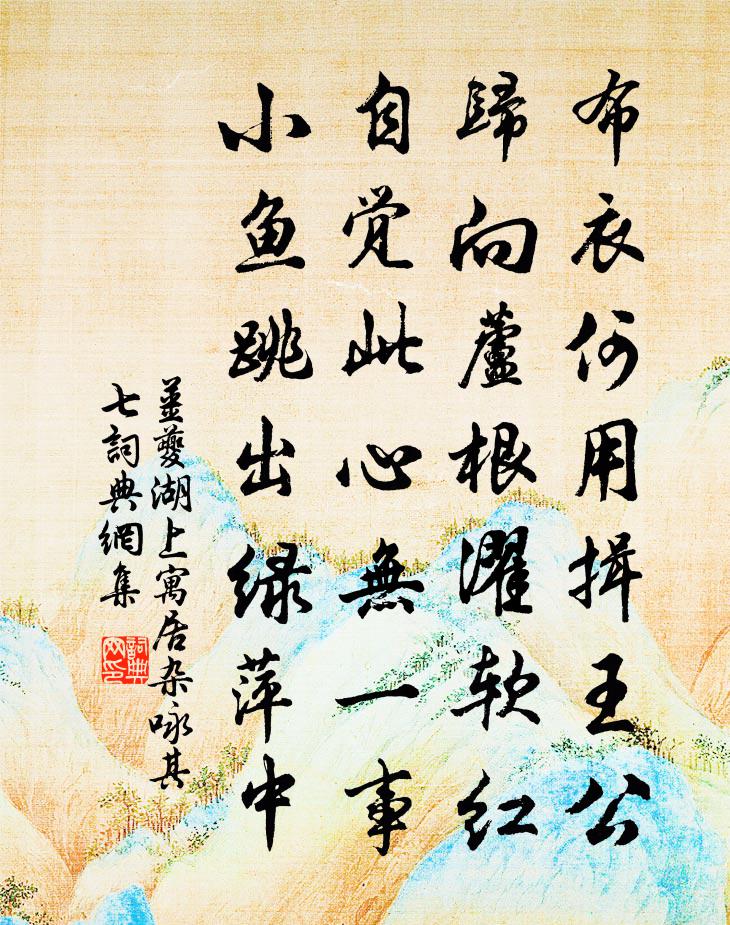 布衣何用揖王公
歸向蘆根濯软红
自觉此心無一事
小鱼跳出绿萍中
姜夔湖上寓居杂咏其
七詞典網集
詞典
网印